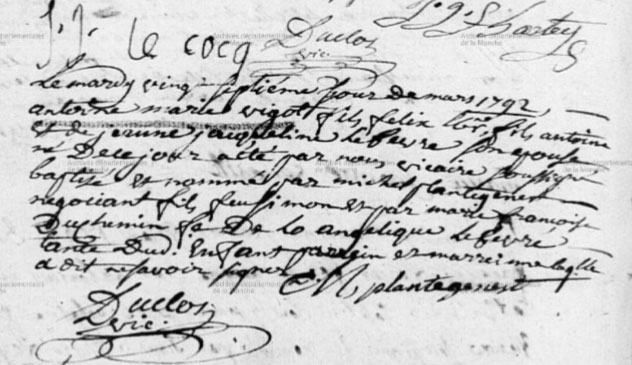 J. J. le cocq
Duclos
vic:
Le mardy vingt septième jour de mars 1792,
antoine marie vigot fils felix lbre, fils antoine
et de jeanne jacqueline lefevre son epouse
né de ce jour a été par nous vicaire soussigné
baptisé et nommé par michel plantegenest
negociant fils feu simon et par marie françoise
Duchemin fe De lo angelique lefevre
tante Dud. Enfant parein et mareine laqlle
a dit ne savoir signer M plantegenest
Duclos
vic: